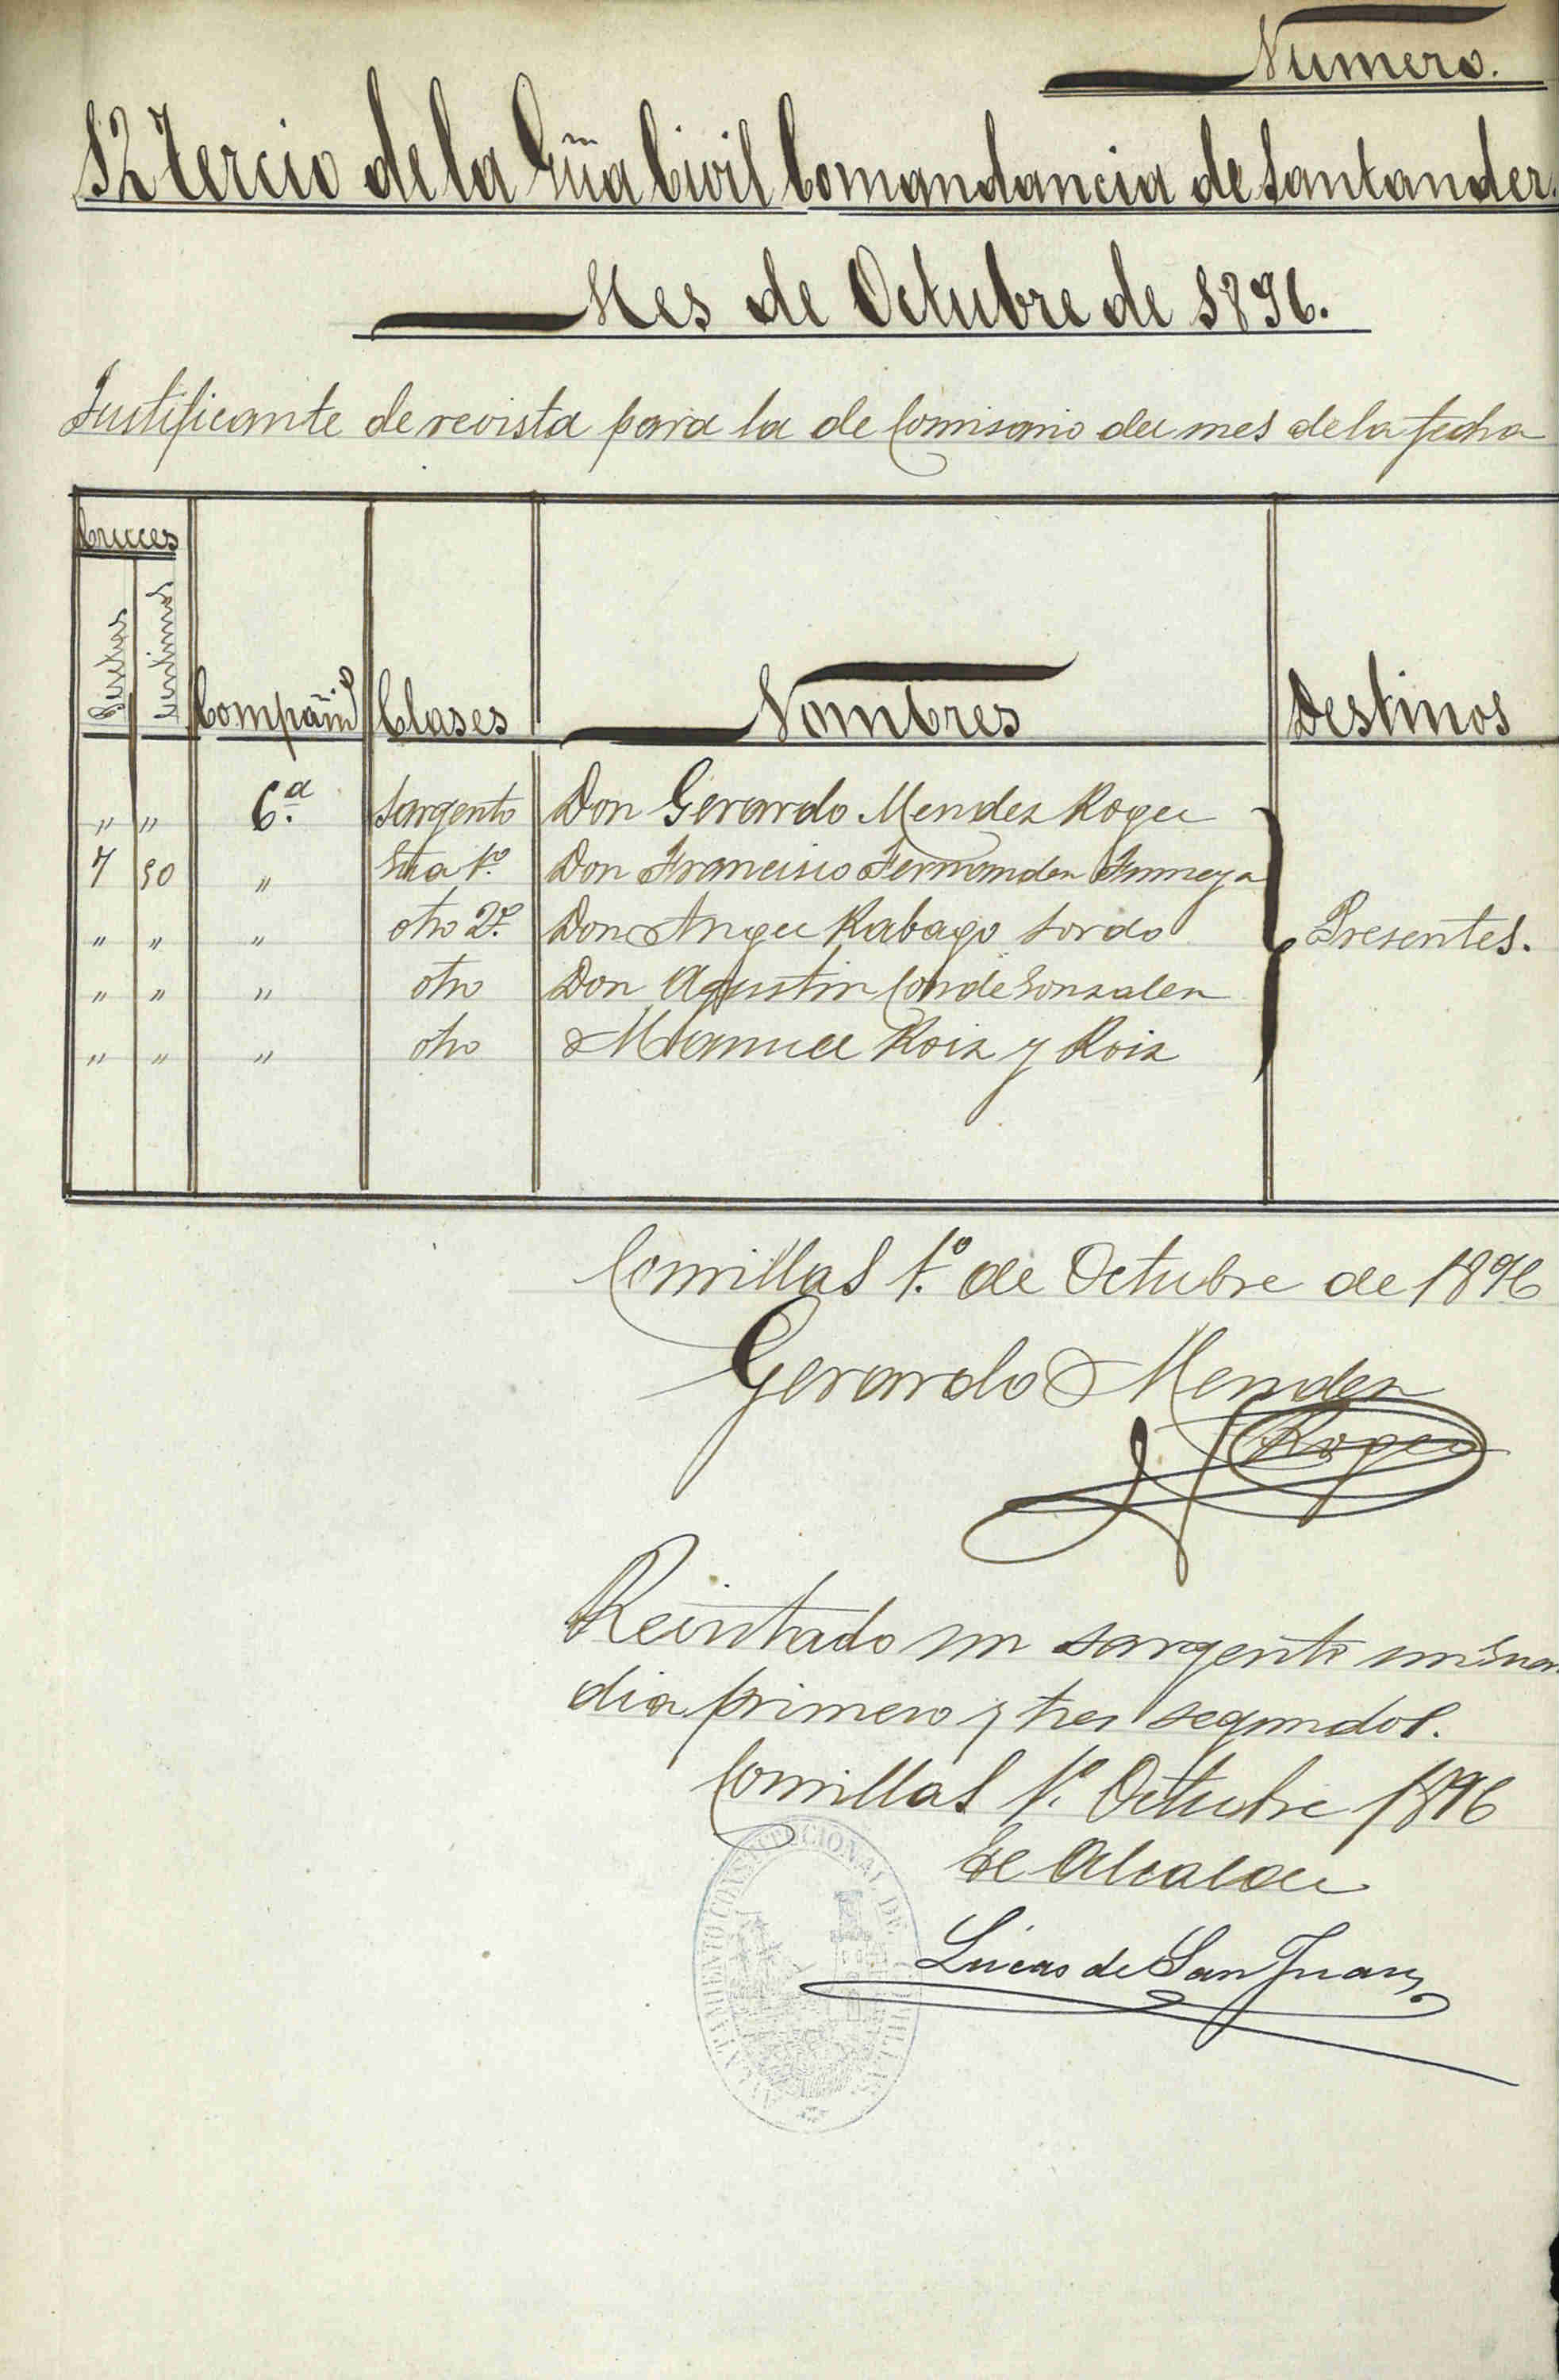 Numero.
12 Tercio de la Gũa Civil Comandancia de Santander.
Mes de Octubre de 1896.
Justificante de revista para la de Comisario del mes de la fecha
Cruces
Pesetas Centimos Compañias Clases Nombres Destinos
" " 6.ª Sargento Don Gerardo Mendez Rogel
7 50 " Gũa 1.º Don Francisco Fernandez
" " " otro 2.º Don Angel Rabago Sordo Presentes.
" " " otro Don Agustin Conde Gonzalez
" " " otro Manuel Roiz y Roiz
Comillas 1.º de Octubre de 1896
Gerardo Mendez
Rogel
Revistado un sargento un Guar
dia primero y tres segundos.
Comillas 1.º Octubre 1896
El Alcalde
Lucas de San Juan
AYUNTAMIENTO CONSTITUCIONAL DE COMILLAS